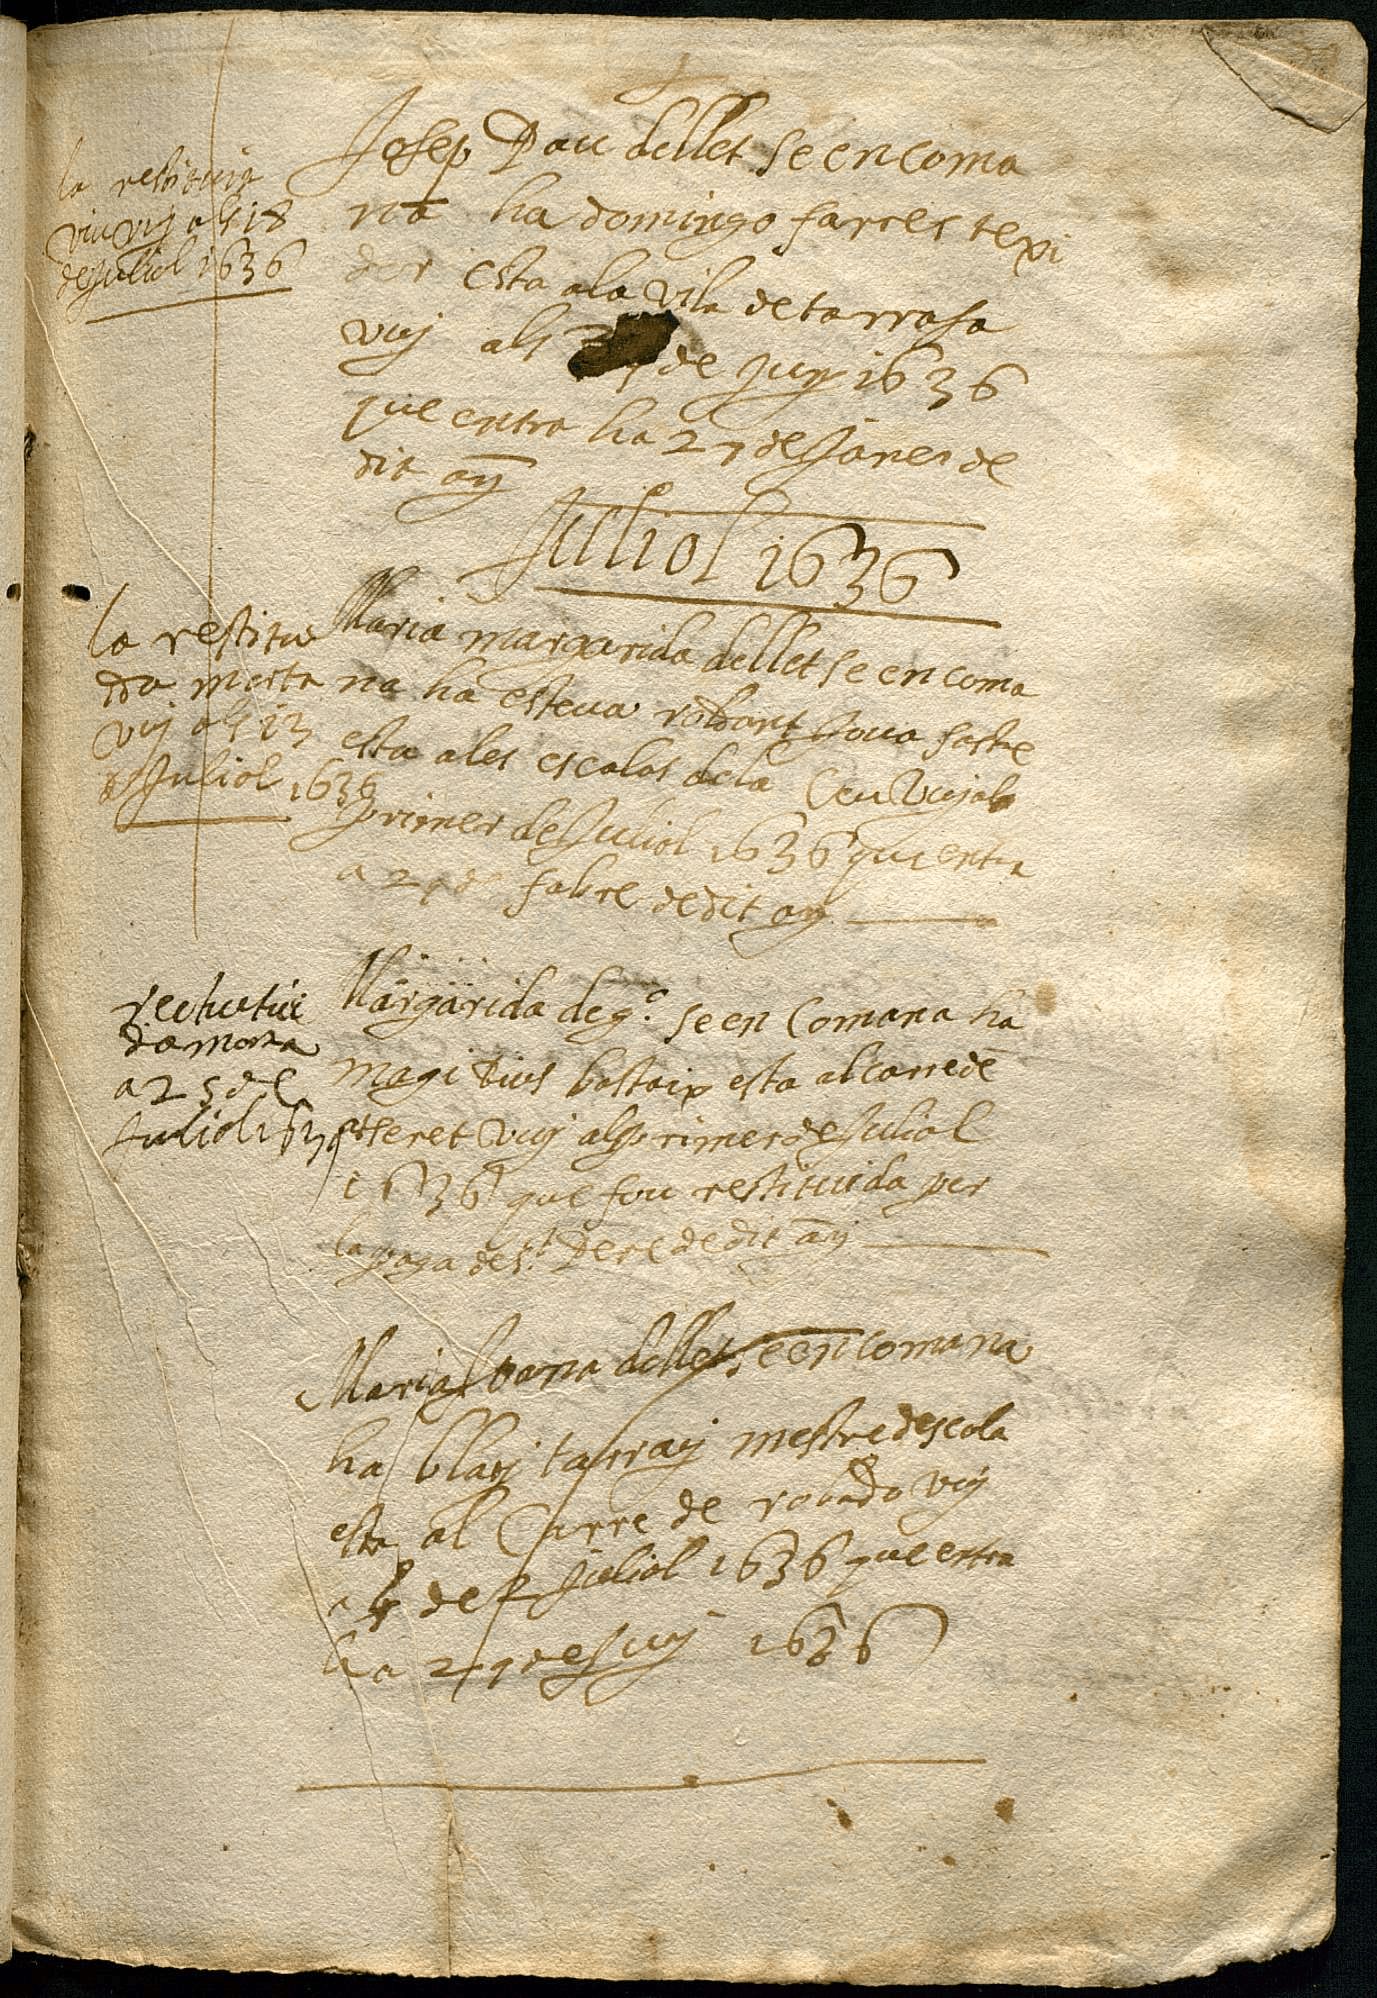 la restituiren
viu vuy als 18
de Juliol 1636
Josep Pau de llet se encoma
na ha domingo farres texi
dor esta ala vila de tarrasa
vuy als de Juny 1636
que entra ha 27 de Janer de
dit añy
Juliol 1636
la restitui
da morta
vuy als 13
de Juliol 1636
Maria margarida de llet se encoma
na ha esteua robant Joua sastre
esta a les escalas de la Seu Vuy als
primer de Juliol 1636 que entra
a 27 de fabre de dit añy
restitui
da morta
a 25 de
Juliol 1636
Margarida de g.ª se en Comana ha
magi Pius bastaix esta al carrede
steret Vuy als primer de Juliol
1636 que fou restituida per
la paga de s.t Pere de dit añy
Maria Joana de llet se encomana
ha blay tarray mestre de escola
esta al Carre de robado vuy
a 4 de Juliol 1636 que entra
ha 27 de Juny 1636